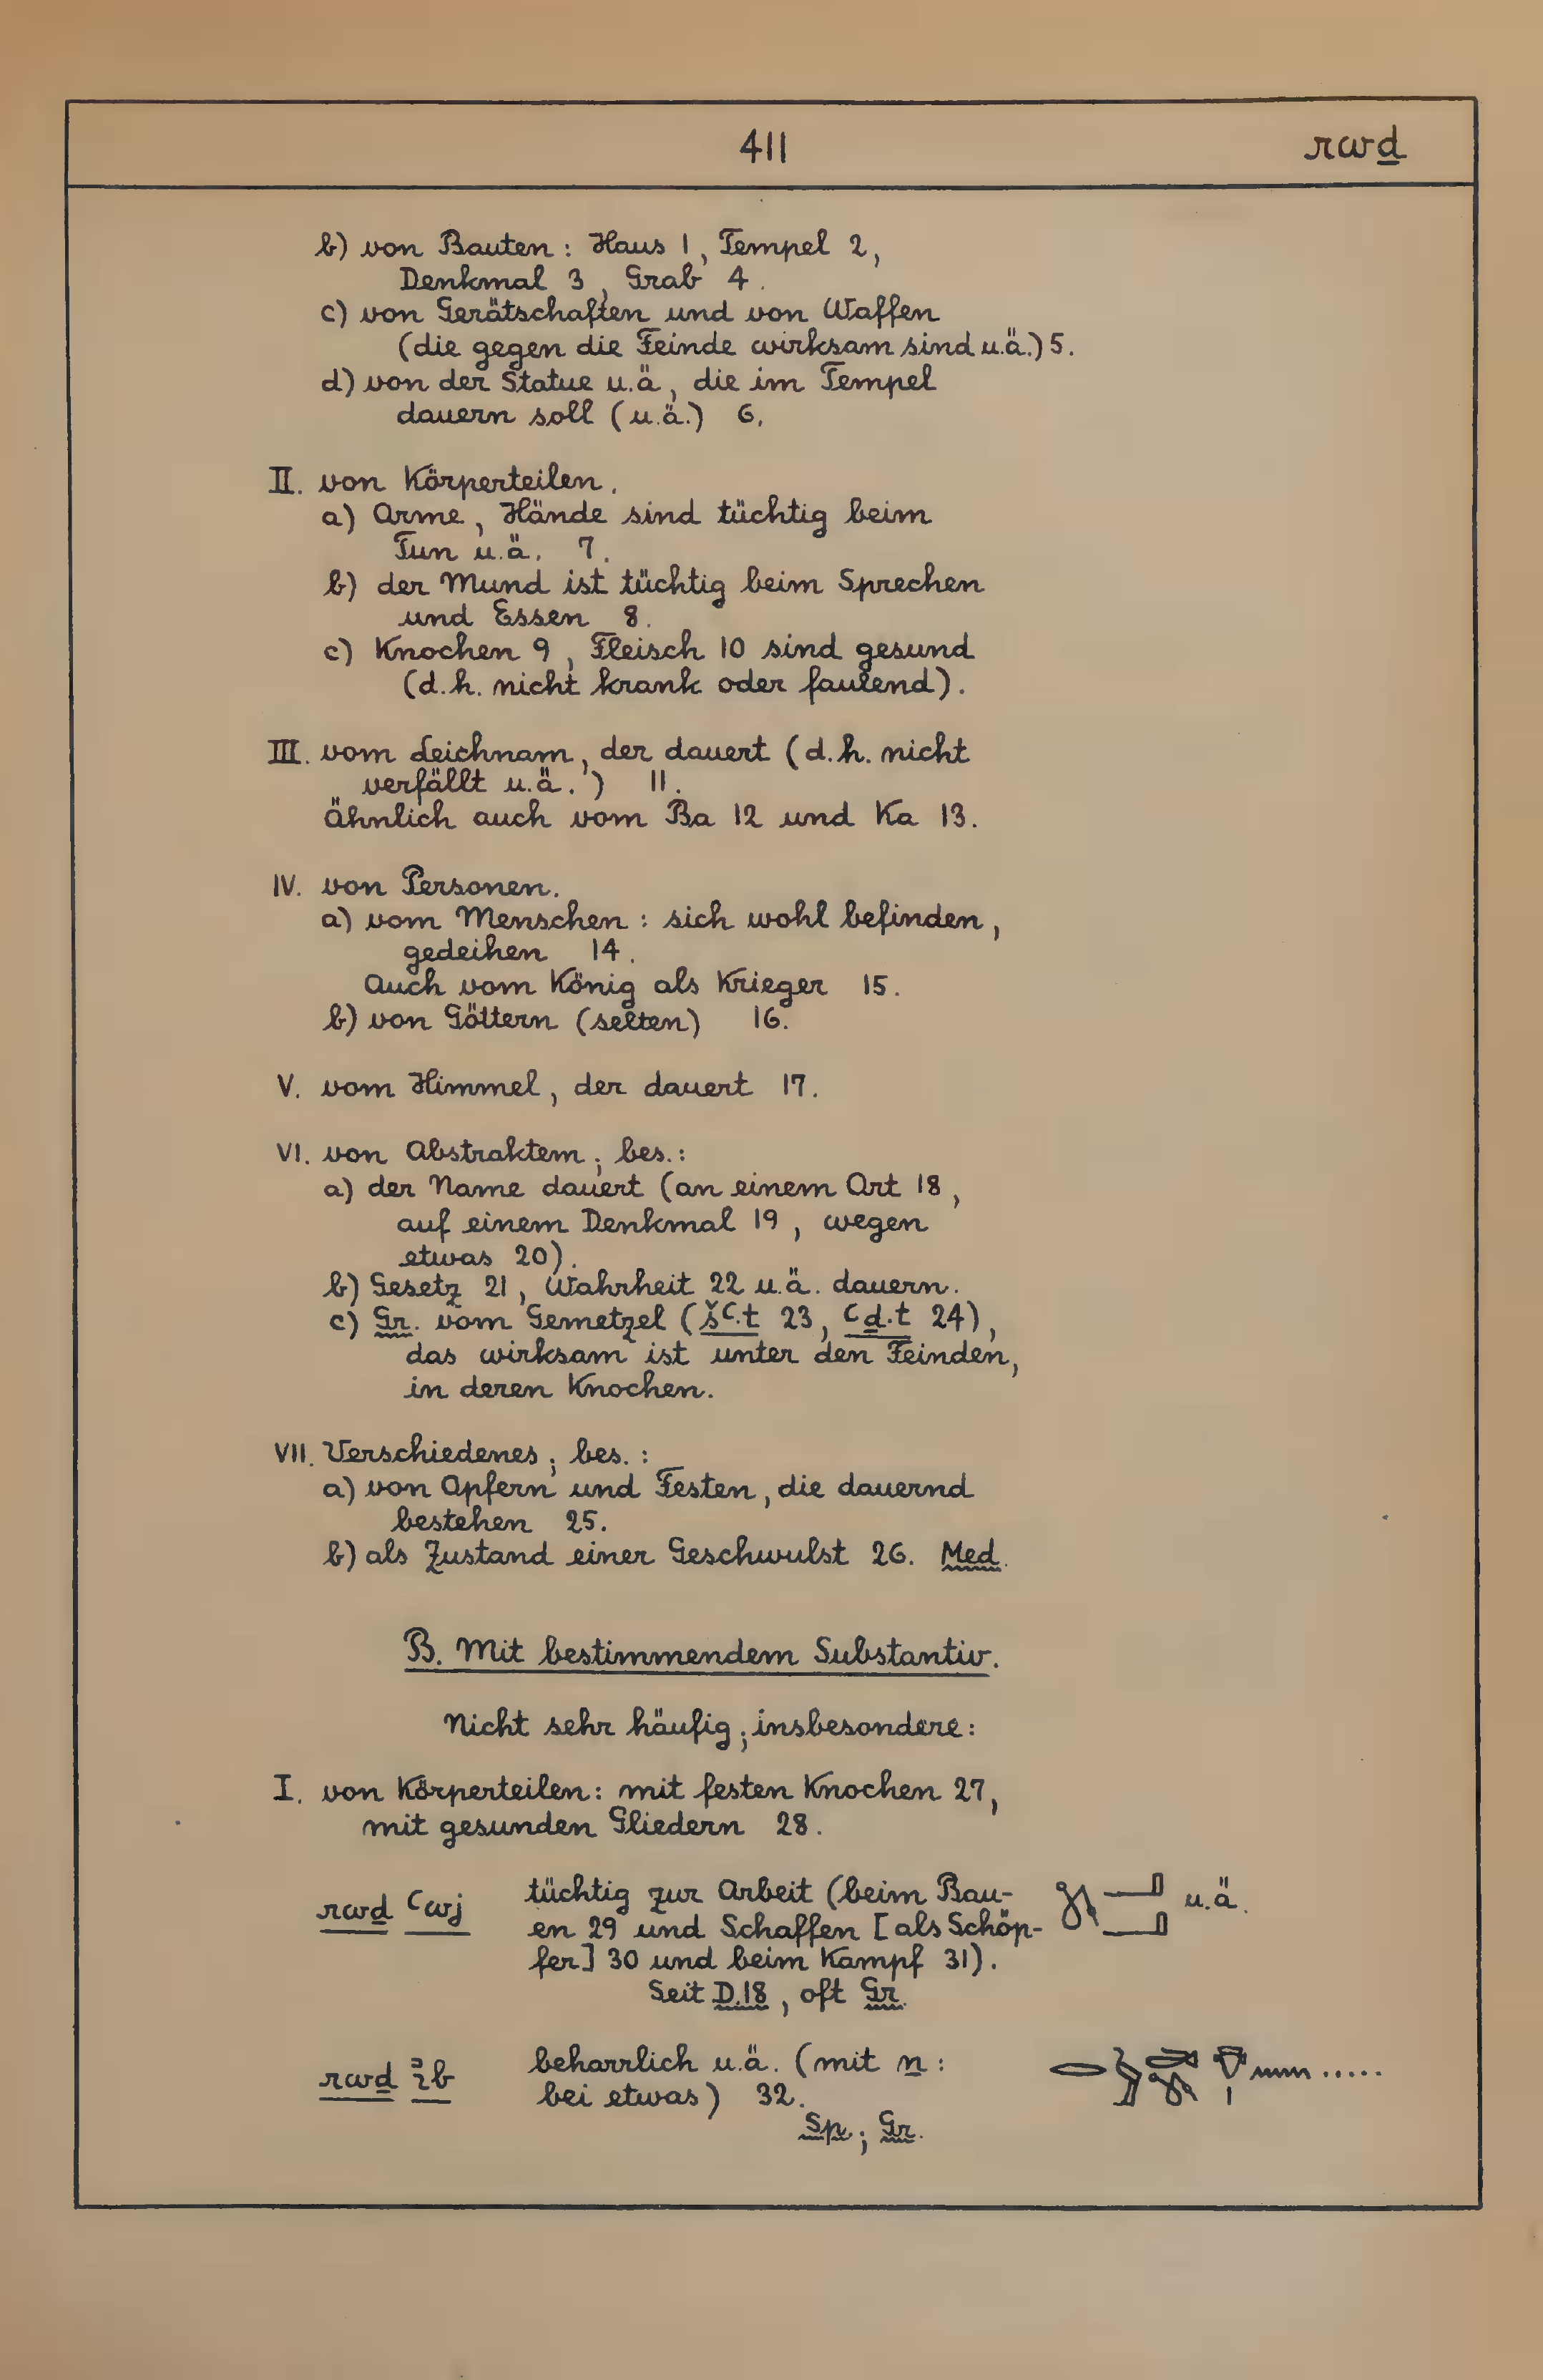 411
rwḏ
b) von Bauten: Haus 1, Tempel 2,
Denkmal 3, Grab 4.
c) von Gerätschaften und von Waffen
(die gegen die Feinde wirksam sind u.ä.) 5.
d) von der Statue u.ä, die im Tempel
dauern soll (u.ä.) 6.
II. von Körperteilen.
a) Arme, Hände sind tüchtig beim
Tun u.ä. 7.
b) der Mund ist tüchtig beim Sprechen
und Essen 8.
c) Knochen 9, Fleisch 10 sind gesund
(d.h. nicht krank oder faulend).
III. vom Leichnam, der dauert (d.h. nicht
verfällt u.ä.) 11.
Ähnlich auch vom Ba 12 und Ka 13.
IV. von Personen.
a) vom Menschen: sich wohl befinden,
gedeihen 14.
Auch vom König als Krieger 15.
b) von Göttern (selten) 16.
V. vom Himmel, der dauert 17.
VI. von Abstraktem; bes.:
a) der Name dauert (an einem Ort 18,
auf einem Denkmal 19, wegen
etwas 20).
b) Gesetz 21, Wahrheit 22 u.ä. dauern.
c) Gr. vom Gemetzel (šꜥ.t 23, ꜥḏ.t 24),
das wirksam ist unter den Feinden,
in deren Knochen.
VII. Verschiedenes; bes.:
a) von Opfern und Festen, die dauernd
bestehen 25.
b) als Zustand einer Geschwulst 26. Med.
B. Mit bestimmendem Substantiv.
Nicht sehr häufig; insbesondere:
I. von Körperteilen: mit festen Knochen 27,
mit gesunden Gliedern 28.
rwḏ ꜥwj tüchtig zur Arbeit (beim Bau- u.ä.
en 29 und Schaffen [als Schöp-
fer] 30 und beim Kampf 31).
Seit D.18, oft Gr.
rwḏ ꞽb beharrlich u.ä. (mit n: .....
bei etwas) 32.
Sp.; Gr.